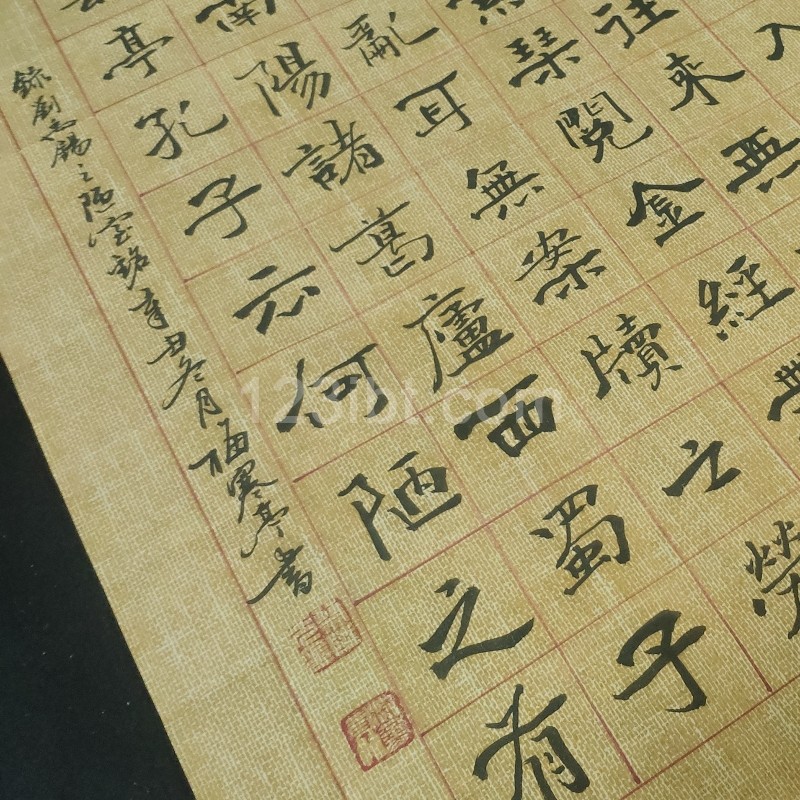 入
往來無
琴閱金經無
亂耳無案牘之勞
南陽諸葛廬西蜀子
亭孔子云何陋之有
錄劉禹錫之陋室銘辛丑冬月栖寒亭書
123lbt.com